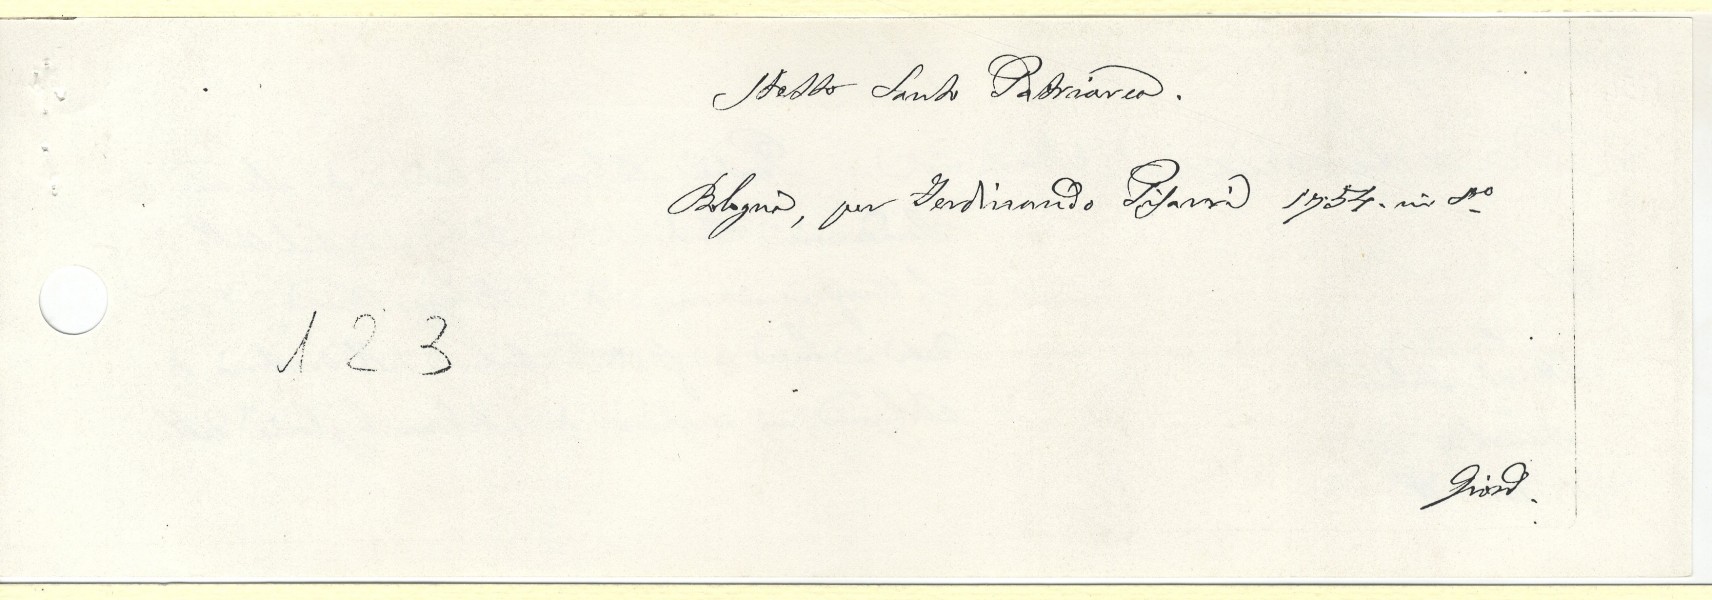 stesso Santo Patriarca.
Bologna, per Ferdinando Pisarri 1754. in 8vo
123
Giord.